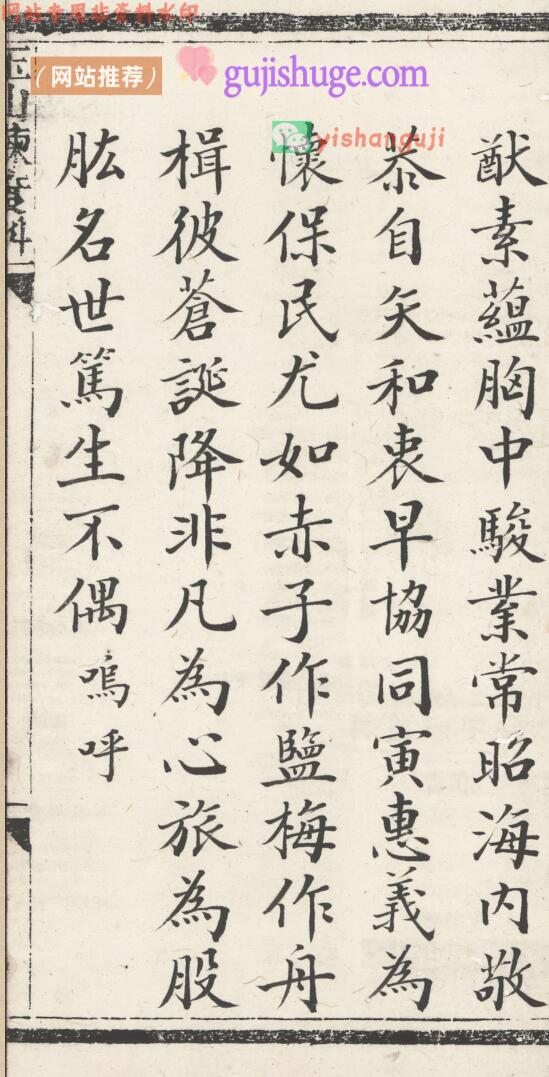 网站专用非资料水印
（网站推荐） gujishuge.com
yishanguji
猷素蘊胸中駿業常昭海内敬
恭自矢和衷早協同寅惠義為
懷保民尤如赤子作鹽梅作舟
楫彼蒼誕降非凡為心旅為股
肱名世篤生不偶嗚呼